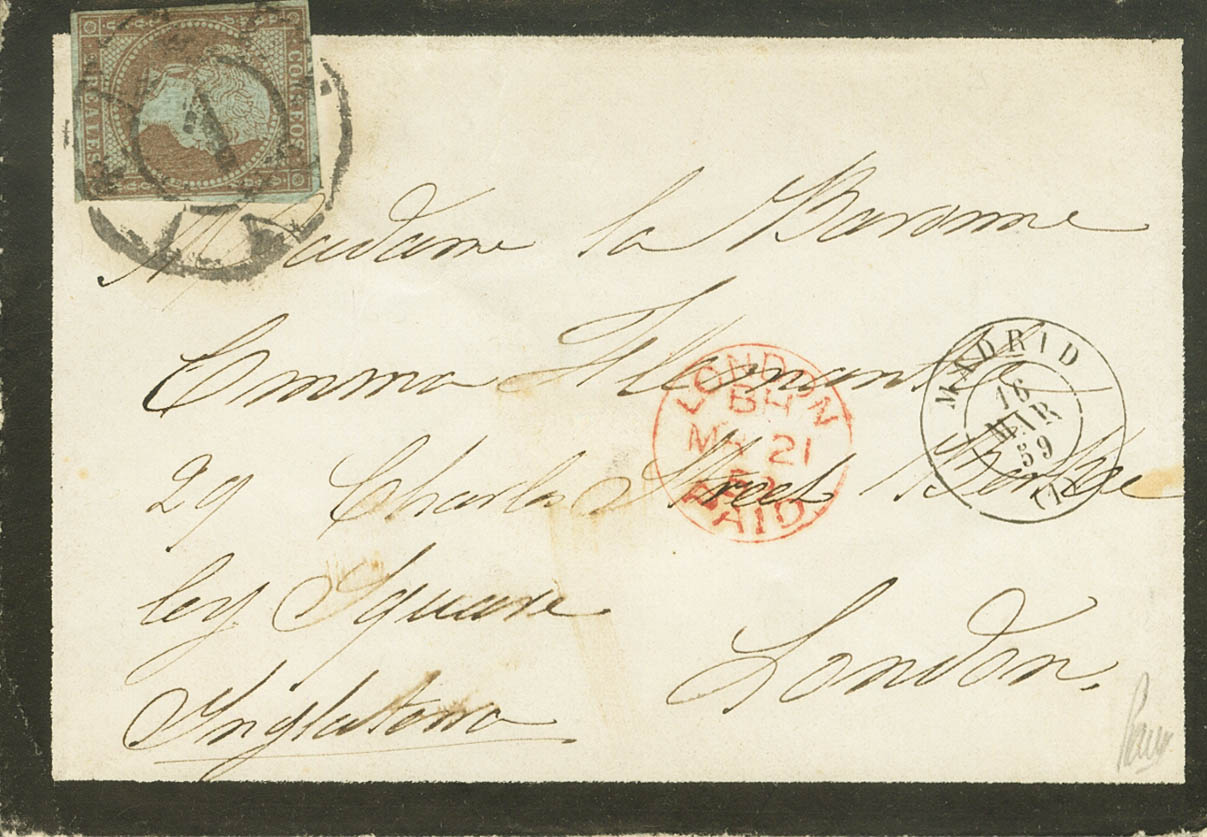 CORREOS
REALES
1
A Madame la Baronne
Emma
29 Charles Street Berke
ley Square
London.
Inglaterra
LONDON
BH
MR 21
59
PAID
MADRID
16
MAR
59
(1)